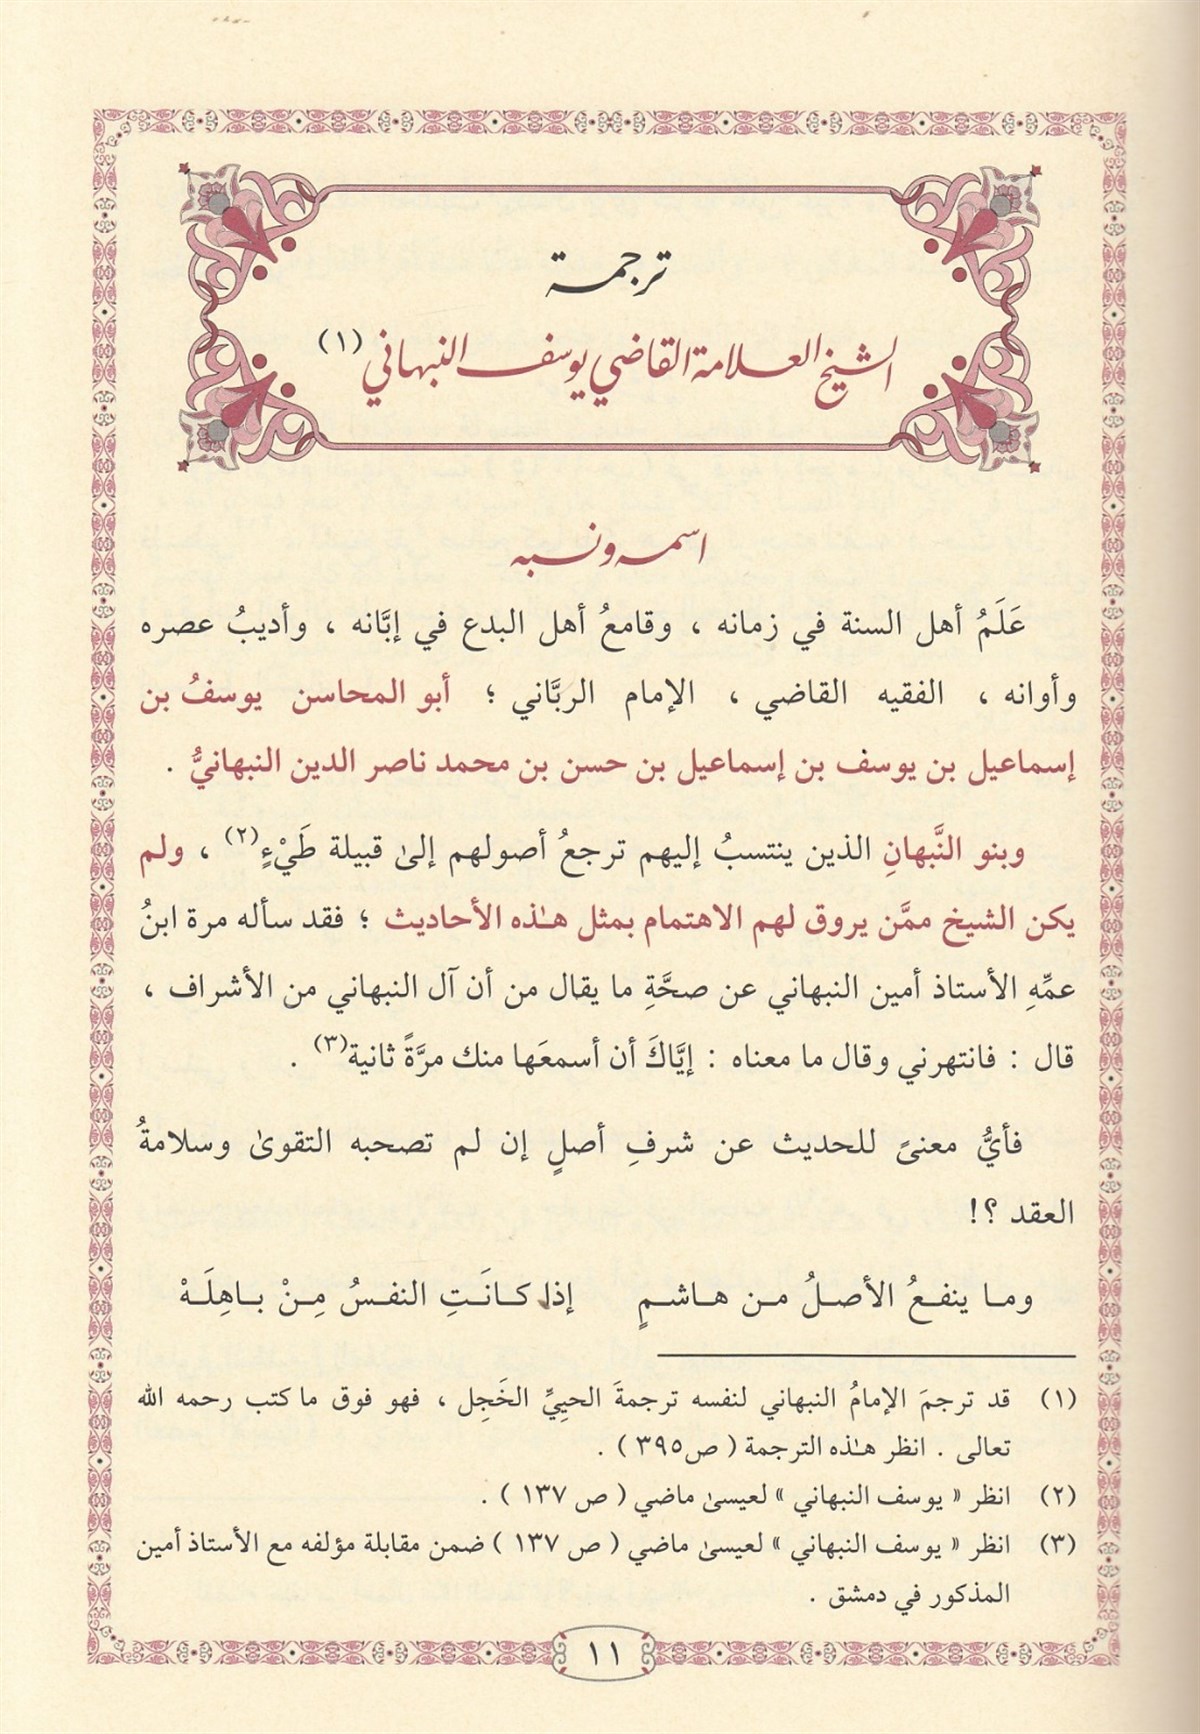 ترجمة
الشيخ العلامة القاضي يوسف النبهاني (١)
اسمه ونسبه
عَلَمُ أهل السنة في زمانه ، وقامعُ أهل البدع في إبَّانه ، وأديبُ عصره
وأوانه ، الفقيه القاضي ، الإمام الربَّاني ؛ أبو المحاسن يوسفُ بن
إسماعيل بن يوسف بن إسماعيل بن حسن بن محمد ناصر الدين النبهانيُّ .
وبنو النَّبهانِ الذين ينتسبُ إليهم ترجعُ أصولهم إلىٰ قبيلة طَيْءٍ(٢) ، ولم
يكن الشيخ ممَّن يروق لهم الاهتمام بمثل هـٰذه الأحاديث ؛ فقد سأله مرة ابنُ
عمِّهِ الأستاذ أمين النبهاني عن صحَّةِ ما يقال من أن آل النبهاني من الأشراف ،
قال : فانتهرني وقال ما معناه : إيَّاكَ أن أسمعَها منك مرَّةً ثانية(٣) .
فأيُّ معنىً للحديث عن شرفِ أصلٍ إن لم تصحبه التقوىٰ وسلامةُ
العقد ؟!
وما ينفعُ الأصلُ من هاشمٍ إذا كانَتِ النفسُ مِنْ باهِلَهْ
(١) قد ترجمَ الإمامُ النبهاني لنفسه ترجمةَ الحييِّ الخَجِل ، فهو فوق ما كتب رحمه الله
تعالى . انظر هـٰذه الترجمة ( ص٣٩٥ ) .
(٢) انظر « يوسف النبهاني » لعيسىٰ ماضي ( ص ١٣٧ ) .
(٣) انظر « يوسف النبهاني » لعيسىٰ ماضي ( ص ١٣٧ ) ضمن مقابلة مؤلفه مع الأستاذ أمين
المذكور في دمشق .
١١